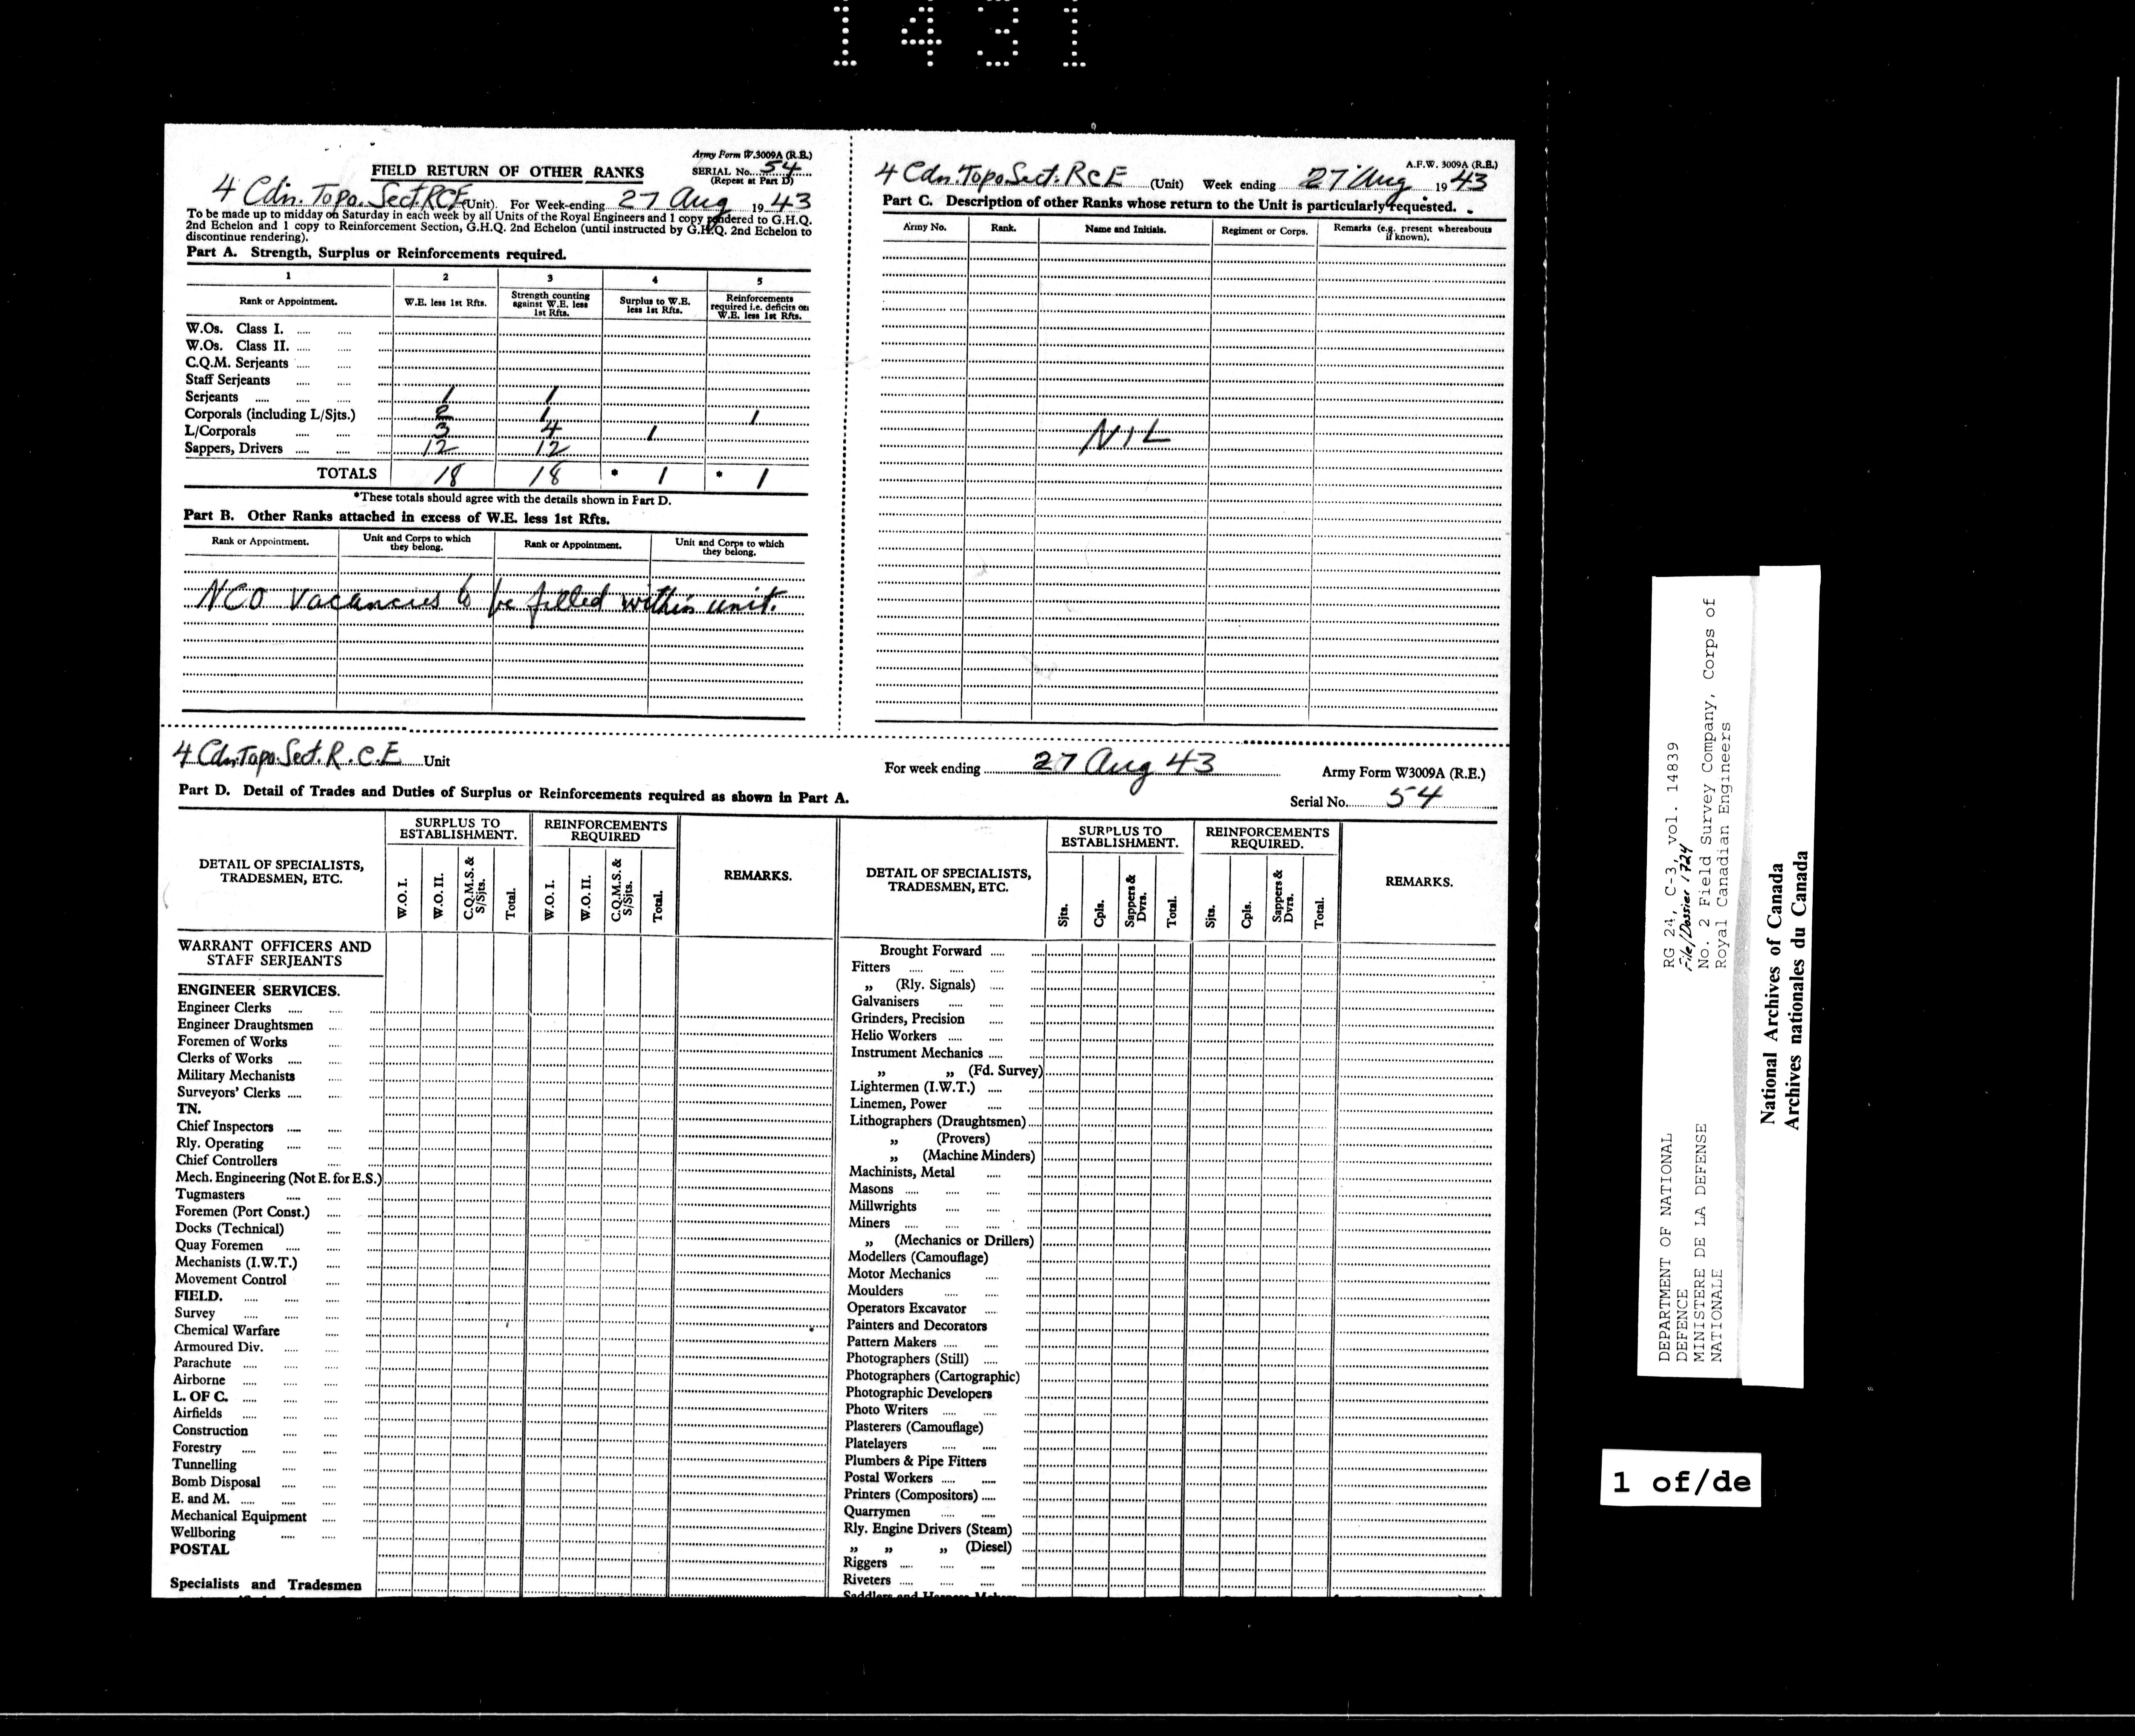 1431
Army Form W.3009A (R.E.)
FIELD RETURN OF OTHER RANKS
SERIAL No. 54
(Repeat at Part D)
4 Cdn. Topo. Sect. RCE (Unit). For Week-ending 27 Aug 1943
To be made up to midday on Saturday in each week by all Units of the Royal Engineers and 1 copy rendered to G.H.Q.
2nd Echelon and 1 copy to Reinforcement Section, G.H.Q. 2nd Echelon (until instructed by G.H.Q. 2nd Echelon to
discontinue rendering).
Part A. Strength, Surplus or Reinforcements required.
1 2 3 4 5
Rank or Appointment. W.E. less 1st Rfts. Strength counting against W.E. less 1st Rfts. Surplus to W.E. less 1st Rfts. Reinforcements required i.e. deficits on W.E. less 1st Rfts.
W.Os. Class I.
W.Os. Class II.
C.Q.M. Serjeants
Staff Serjeants
Serjeants 1 1
Corporals (including L/Sjts.) 2 1 1
L/Corporals 3 4 1
Sappers, Drivers 12 12
TOTALS 18 18 * 1 * 1
*These totals should agree with the details shown in Part D.
Part B. Other Ranks attached in excess of W.E. less 1st Rfts.
Rank or Appointment. Unit and Corps to which they belong. Rank or Appointment. Unit and Corps to which they belong.
NCO vacancies to be filled within unit.
A.F.W. 3009A (R.E.)
4 Cdn. Topo Sect. RCE (Unit) Week ending 27 Aug 1943
Part C. Description of other Ranks whose return to the Unit is particularly requested.
Army No. Rank. Name and Initials. Regiment or Corps. Remarks (e.g. present whereabouts if known).
NIL
4 Cdn. Topo. Sect. R.C.E Unit
For week ending 27 Aug 43 Army Form W3009A (R.E.)
Part D. Detail of Trades and Duties of Surplus or Reinforcements required as shown in Part A.
Serial No. 54
DETAIL OF SPECIALISTS, TRADESMEN, ETC.
SURPLUS TO ESTABLISHMENT.
W.O. I. W.O. II. C.Q.M.S. & S/Sjts. Total.
REINFORCEMENTS REQUIRED
W.O. I. W.O. II. C.Q.M.S. & S/Sjts. Total.
REMARKS.
WARRANT OFFICERS AND
STAFF SERJEANTS
ENGINEER SERVICES.
Engineer Clerks
Engineer Draughtsmen
Foremen of Works
Clerks of Works
Military Mechanists
Surveyors' Clerks
TN.
Chief Inspectors
Rly. Operating
Chief Controllers
Mech. Engineering (Not E. for E.S.)
Tugmasters
Foremen (Port Const.)
Docks (Technical)
Quay Foremen
Mechanists (I.W.T.)
Movement Control
FIELD.
Survey
Chemical Warfare
Armoured Div.
Parachute
Airborne
L. OF C.
Airfields
Construction
Forestry
Tunnelling
Bomb Disposal
E. and M.
Mechanical Equipment
Wellboring
POSTAL
Specialists and Tradesmen
DETAIL OF SPECIALISTS, TRADESMEN, ETC.
SURPLUS TO ESTABLISHMENT.
Sjts. Cpls. Sappers & Dvrs. Total.
REINFORCEMENTS REQUIRED.
Sjts. Cpls. Sappers & Dvrs. Total.
REMARKS.
Brought Forward
Fitters
„ (Rly. Signals)
Galvanisers
Grinders, Precision
Helio Workers
Instrument Mechanics
„ „ (Fd. Survey)
Lightermen (I.W.T.)
Linemen, Power
Lithographers (Draughtsmen)
„ (Provers)
„ (Machine Minders)
Machinists, Metal
Masons
Millwrights
Miners
„ (Mechanics or Drillers)
Modellers (Camouflage)
Motor Mechanics
Moulders
Operators Excavator
Painters and Decorators
Pattern Makers
Photographers (Still)
Photographers (Cartographic)
Photographic Developers
Photo Writers
Plasterers (Camouflage)
Platelayers
Plumbers & Pipe Fitters
Postal Workers
Printers (Compositors)
Quarrymen
Rly. Engine Drivers (Steam)
„ „ „ (Diesel)
Riggers
Riveters
Saddlers and Harness Makers
DEPARTMENT OF NATIONAL
DEFENCE
MINISTERE DE LA DEFENSE
NATIONALE
RG 24, C-3, vol. 14839
File/Dossier 1724
No. 2 Field Survey Company, Corps of
Royal Canadian Engineers
National Archives of Canada
Archives nationales du Canada
1 of/de